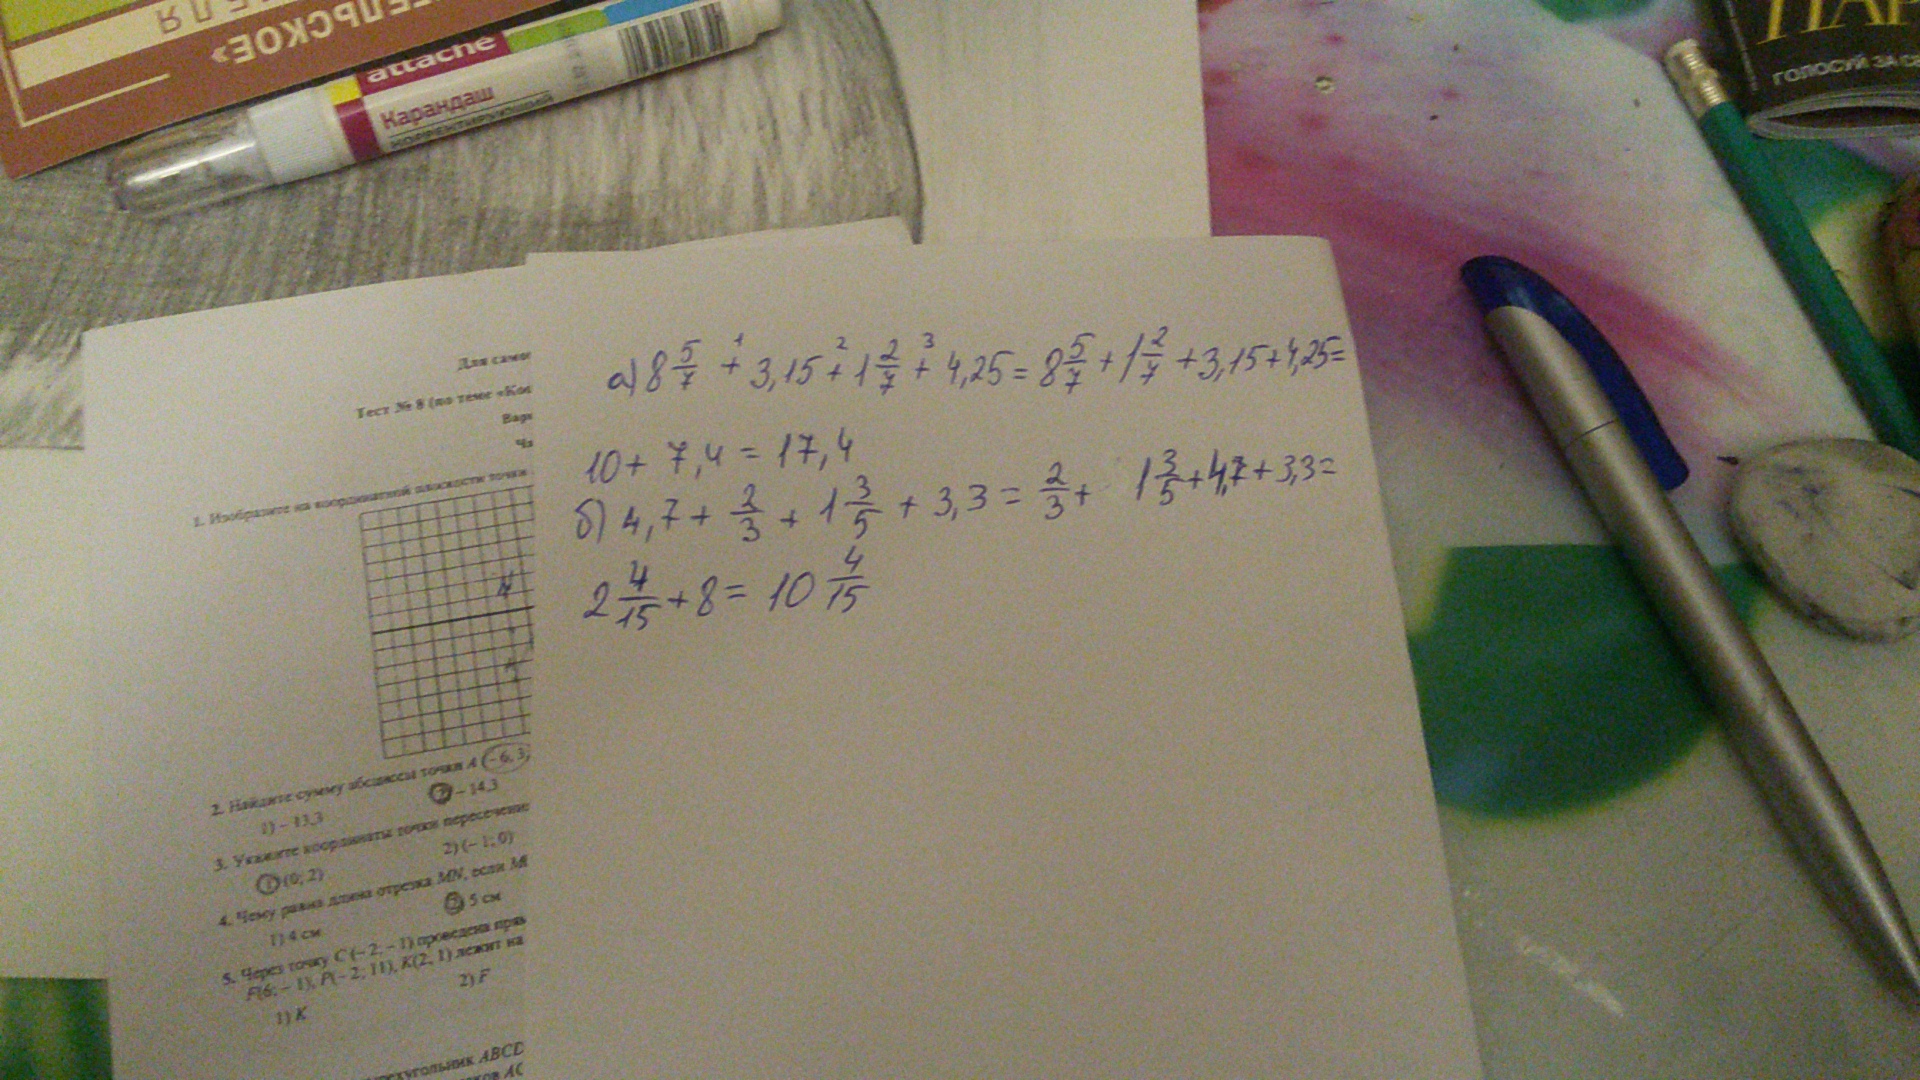 ЕЛЬСКОЕ»
attache
Карандаш
КОРРЕКТИРУЮЩИЙ
ПАР
ГОЛОСУЙ ЗА СВ
Для само
Тест № 8 (по теме «Коо
Вари
Ча
1. Изобразите на координатной плоскости точки
2. Найдите сумму абсциссы точки A (– 6; 3
1) – 13,3 2) – 14,3
3. Укажите координаты точки пересечени
1) (0; 2) 2) (– 1; 0)
4. Чему равна длина отрезка MN, если M
1) 4 см 2) 5 см
5. Через точку C (– 2; – 1) проведена пря
F(6; – 1), P(– 2; 11), K(2; 1) лежит на
1) K 2) F
рехугольник ABCD
ков AC
1 2 3
а) 8 5/7 + 3,15 + 1 2/7 + 4,25 = 8 5/7 + 1 2/7 + 3,15 + 4,25 =
10 + 7,4 = 17,4
б) 4,7 + 2/3 + 1 3/5 + 3,3 = 2/3 + 1 3/5 + 4,7 + 3,3 =
2 4/15 + 8 = 10 4/15